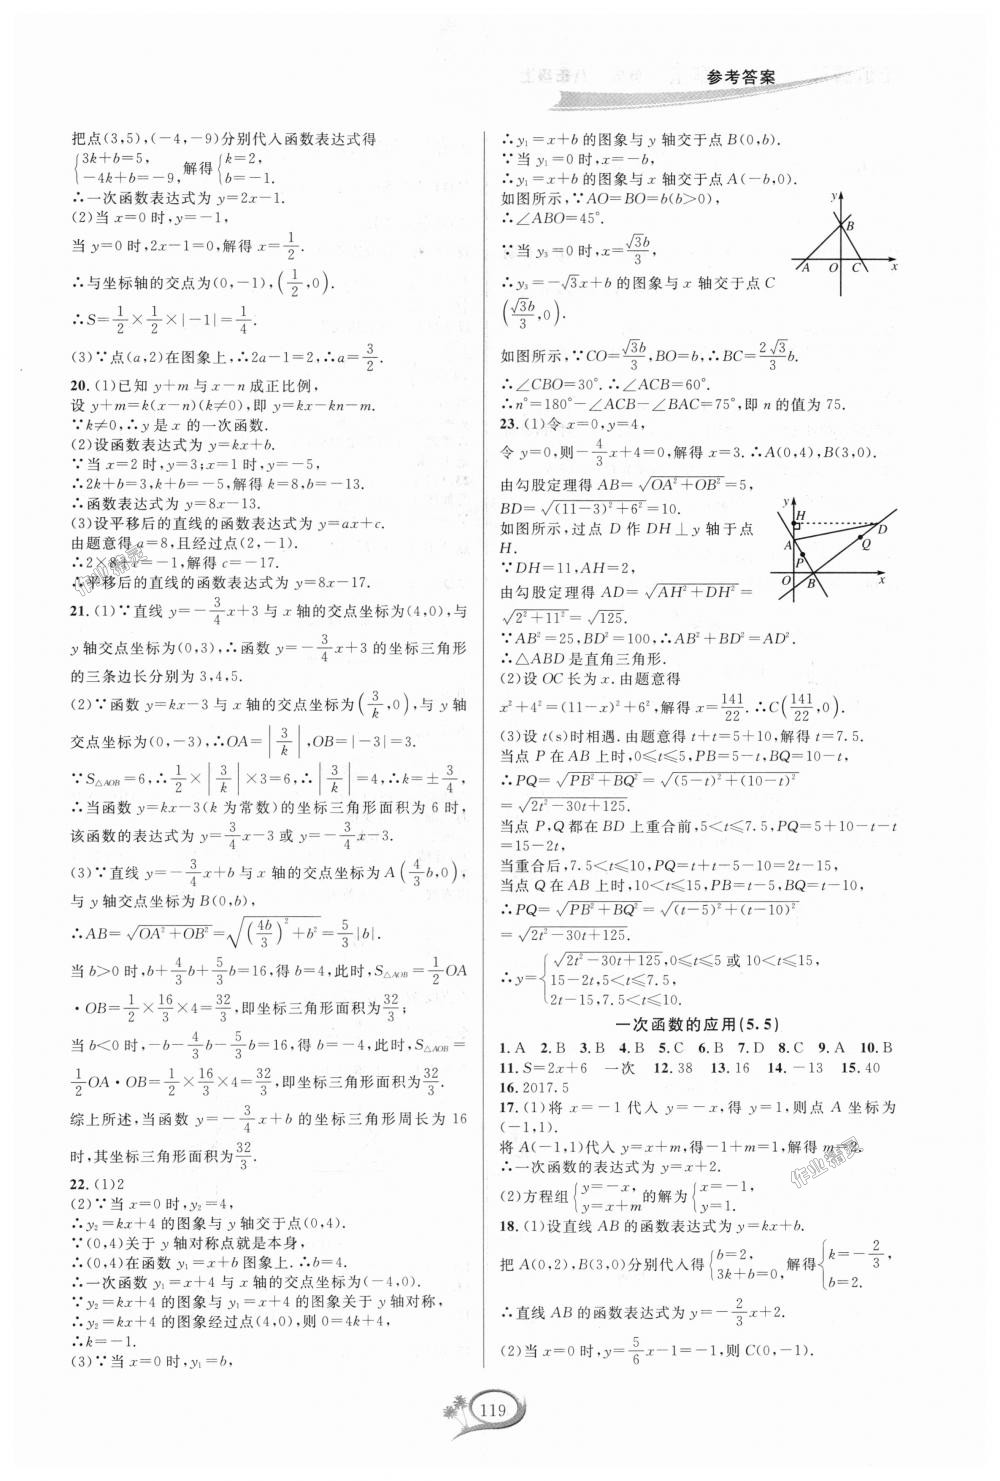 参考答案
把点(3,5),(-4,-9)分别代入函数表达式得
{3k+b=5, -4k+b=-9, 解得{k=2, b=-1.
∴一次函数表达式为 y=2x-1.
(2)当 x=0 时,y=-1,
当 y=0时,2x-1=0,解得 x=1/2.
∴与坐标轴的交点为(0,-1),(1/2,0).
∴S=1/2×1/2×|-1|=1/4.
(3)∵点(a,2)在图象上,∴2a-1=2,∴a=3/2.
20. (1)已知 y+m 与 x-n 成正比例,
设 y+m=k(x-n)(k≠0),即 y=kx-kn-m.
∵k≠0,∴y 是 x 的一次函数.
(2)设函数表达式为 y=kx+b.
∵当 x=2 时,y=3;x=1 时,y=-5,
∴2k+b=3,k+b=-5,解得 k=8,b=-13.
∴函数表达式为 y=8x-13.
(3)设平移后的直线的函数表达式为 y=ax+c.
由题意得 a=8,且经过点(2,-1).
∴2×8+c=-1,解得 c=-17.
∴平移后的直线的函数表达式为 y=8x-17.
21. (1)∵直线 y=-3/4x+3 与 x 轴的交点坐标为(4,0),与
y轴交点坐标为(0,3),∴函数 y=-3/4x+3 的坐标三角形
的三条边长分别为 3,4,5.
(2)∵函数 y=kx-3 与 x 轴的交点坐标为(3/k,0),与 y轴
交点坐标为(0,-3),∴OA=|3/k|,OB=|-3|=3.
∵S△AOB=6,∴1/2×|3/k|×3=6,∴|3/k|=4,∴k=±3/4,
∴当函数 y=kx-3(k 为常数)的坐标三角形面积为 6 时,
该函数的表达式为 y=3/4x-3 或 y=-3/4x-3.
(3)∵直线 y=-3/4x+b 与 x 轴的交点坐标为 A(4/3b,0),
与 y 轴交点坐标为 B(0,b),
∴AB=√(OA²+OB²)=√((4b/3)²+b²)=5/3|b|.
当 b>0时,b+4/3b+5/3b=16,得 b=4,此时,S△AOB=1/2OA
·OB=1/2×16/3×4=32/3,即坐标三角形面积为32/3;
当 b<0 时,-b-4/3b-5/3b=16,得 b=-4,此时,S△AOB=
1/2OA·OB=1/2×16/3×4=32/3,即坐标三角形面积为32/3.
综上所述,当函数 y=-3/4x+b 的坐标三角形周长为 16
时,其坐标三角形面积为32/3.
22. (1)2
(2)∵当 x=0 时,y₂=4,
∴y₂=kx+4 的图象与 y 轴交于点(0,4).
∵(0,4)关于 y 轴对称点就是本身,
∴(0,4)在函数 y₁=x+b 图象上.∴b=4.
∴一次函数 y₁=x+4 与 x 轴的交点坐标为(-4,0).
∵y₂=kx+4 的图象与 y₁=x+4 的图象关于 y 轴对称,
∴y₂=kx+4 的图象经过点(4,0),则 0=4k+4,
∴k=-1.
(3)∵当 x=0 时,y₁=b,
∴y₁=x+b 的图象与 y 轴交于点 B(0,b).
∵当 y₁=0 时,x=-b,
∴y₁=x+b 的图象与 x 轴交于点 A(-b,0).
如图所示,∵AO=BO=b(b>0),
∴∠ABO=45°.
∵当 y₃=0 时,x=√3b/3,
∴y₃=-√3x+b 的图象与 x 轴交于点 C
(√3b/3,0).
y
B
A O C x
如图所示,∵CO=√3b/3,BO=b,∴BC=2√3/3b.
∴∠CBO=30°.∴∠ACB=60°.
∴n°=180°-∠ACB-∠BAC=75°,即 n 的值为 75.
23. (1)令 x=0,y=4,
令 y=0,则-4/3x+4=0,解得 x=3.∴A(0,4),B(3,0).
由勾股定理得 AB=√(OA²+OB²)=5,
BD=√((11-3)²+6²)=10.
如图所示,过点 D 作 DH⊥y 轴于点
H.
∵DH=11,AH=2,
由勾股定理得 AD=√(AH²+DH²)=
√(2²+11²)=√125.
y
H
D
A
Q
P
O B x
∵AB²=25,BD²=100,∴AB²+BD²=AD².
∴△ABD是直角三角形.
(2)设 OC长为 x.由题意得
x²+4²=(11-x)²+6²,解得 x=141/22.∴C(141/22,0).
(3)设 t(s)时相遇.由题意得 t+t=5+10,解得 t=7.5.
当点 P 在 AB 上时,0≤t≤5,PB=5-t,BQ=10-t,
∴PQ=√(PB²+BQ²)=√((5-t)²+(10-t)²)
=√(2t²-30t+125).
当点 P,Q 都在 BD 上重合前,5<t≤7.5,PQ=5+10-t-t
=15-2t,
当重合后,7.5<t≤10,PQ=t+t-5-10=2t-15,
当点 Q 在 AB 上时,10<t≤15,PB=t-5,BQ=t-10,
∴PQ=√(PB²+BQ²)=√((t-5)²+(t-10)²)
=√(2t²-30t+125).
∴y={√(2t²-30t+125),0≤t≤5 或 10<t≤15,
15-2t,5<t≤7.5,
2t-15,7.5<t≤10.
一次函数的应用(5.5)
1. A 2. B 3. B 4. B 5. C 6. B 7. D 8. C 9. A 10. B
11. S=2x+6 一次 12. 38 13. 16 14. -13 15. 40
16. 2017.5
17. (1)将 x=-1 代入 y=-x,得 y=1,则点 A 坐标为
(-1,1).
将 A(-1,1)代入 y=x+m,得-1+m=1,解得 m=2.
∴一次函数的表达式为 y=x+2.
(2)方程组{y=-x, y=x+m 的解为{x=-1, y=1.
18. (1)设直线 AB 的函数表达式为 y=kx+b.
把 A(0,2),B(3,0)分别代入得{b=2, 3k+b=0, 解得{k=-2/3, b=2.
∴直线 AB 的函数表达式为 y=-2/3x+2.
(2)当 x=0 时,y=5/6x-1=-1,则 C(0,-1).
119
作业精灵
作业精灵